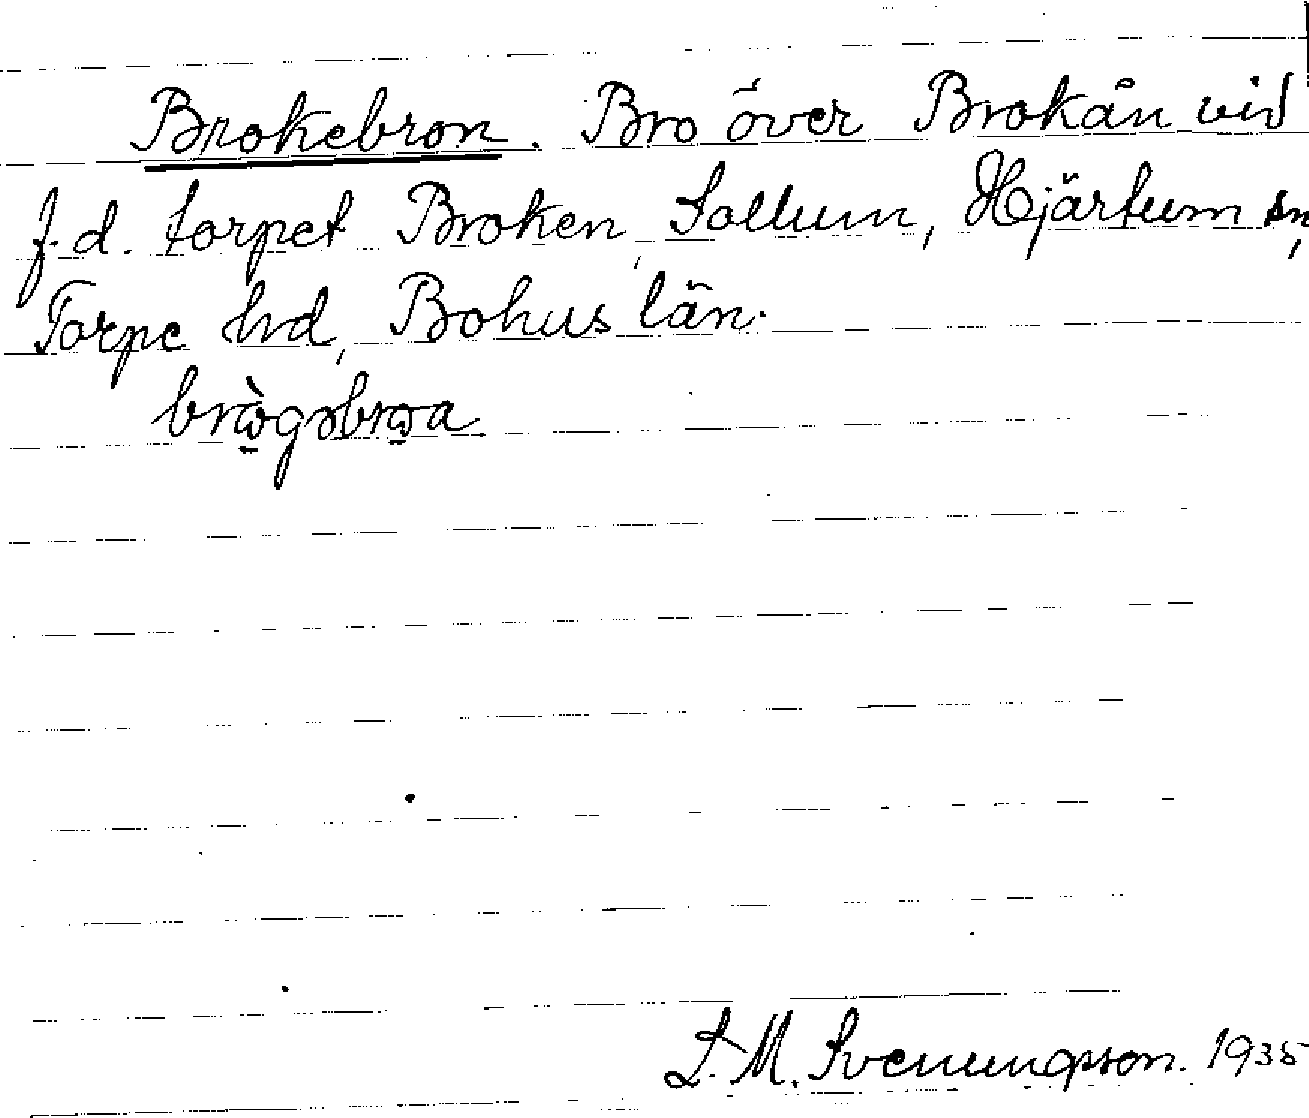 Brokebron. Bro över Brokån vid
f.d. torpet Broken, Sollum, Hjärtum sn,
Torpe hd, Bohus län.
L. M. Svenungsson. 1935